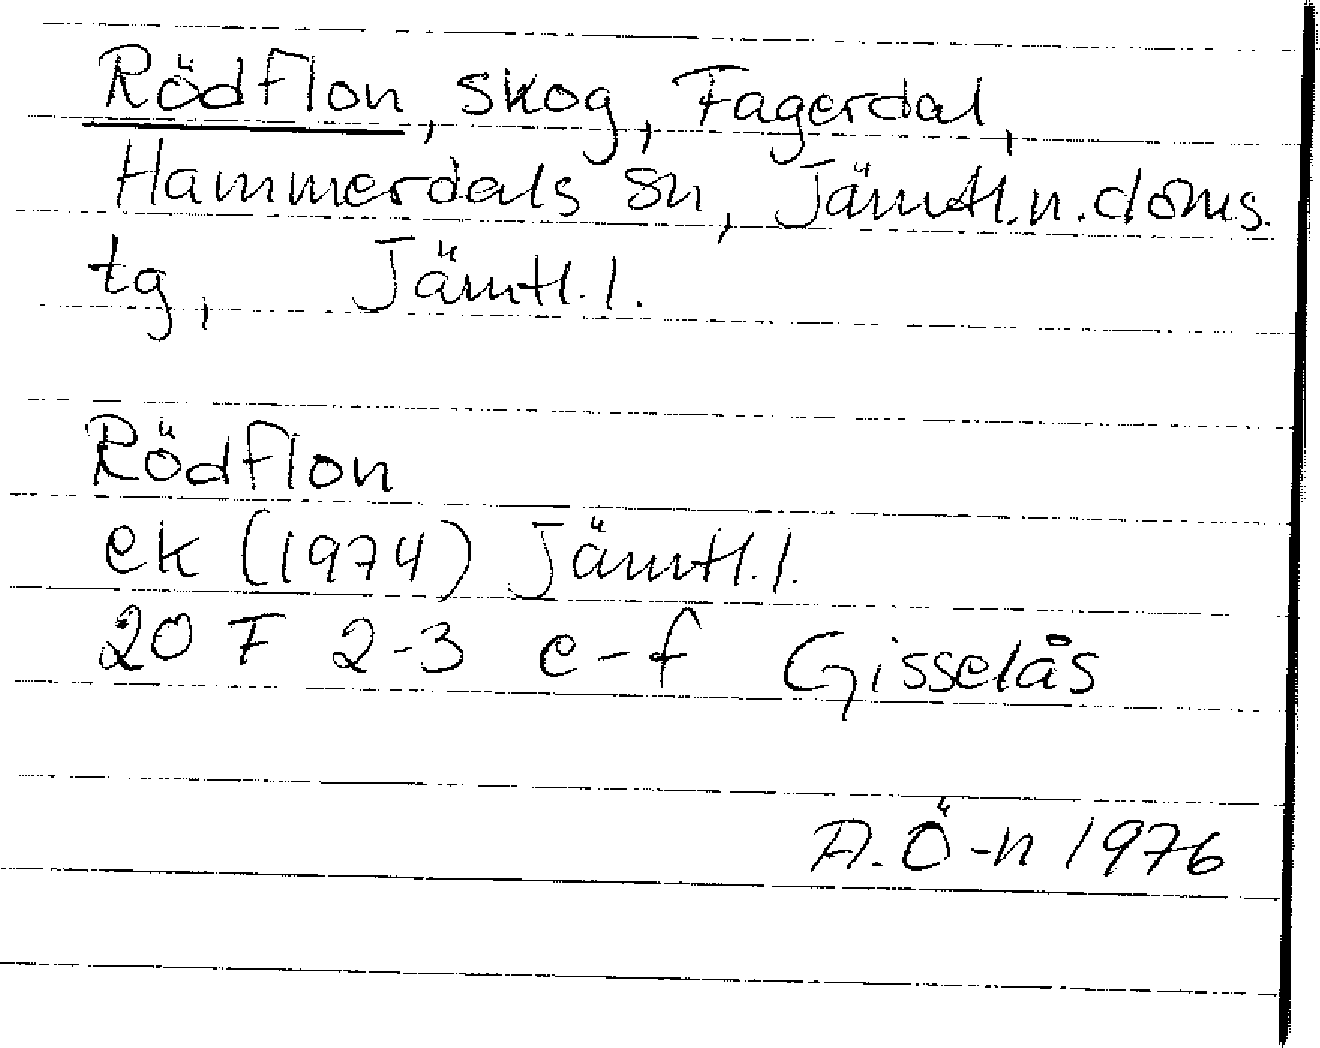 Rödflon, skog, Fagerdal,
Hammerdals sn, Jämtl.n.doms.
tg, Jämtl.l.
Rödflon
ek (1974) Jämtl.l.
20 F 2-3 e-f Gisselås
A.Ö-n 1976